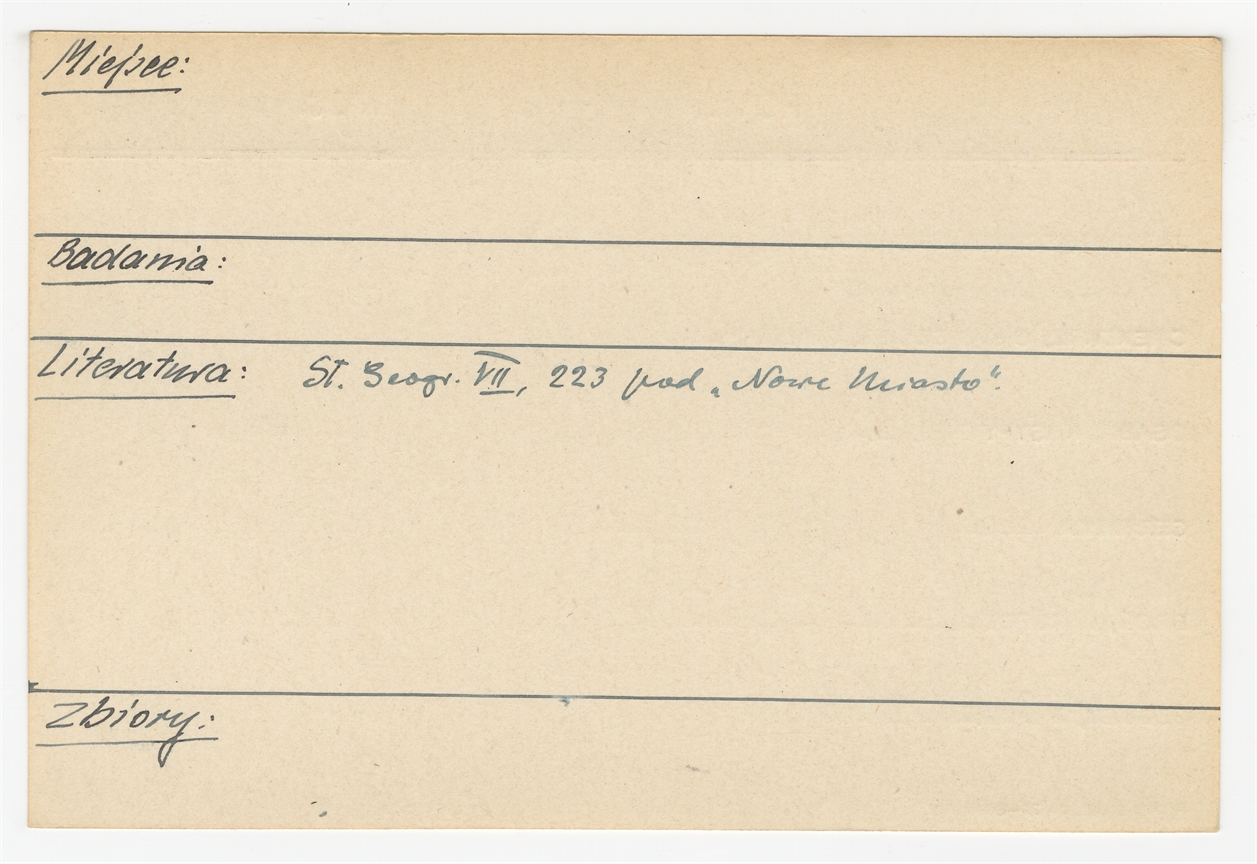 Miejsce:
Badania:
Literatura: Sł. Geogr. VII, 223 pod „Nowe Miasto".
Zbiory: